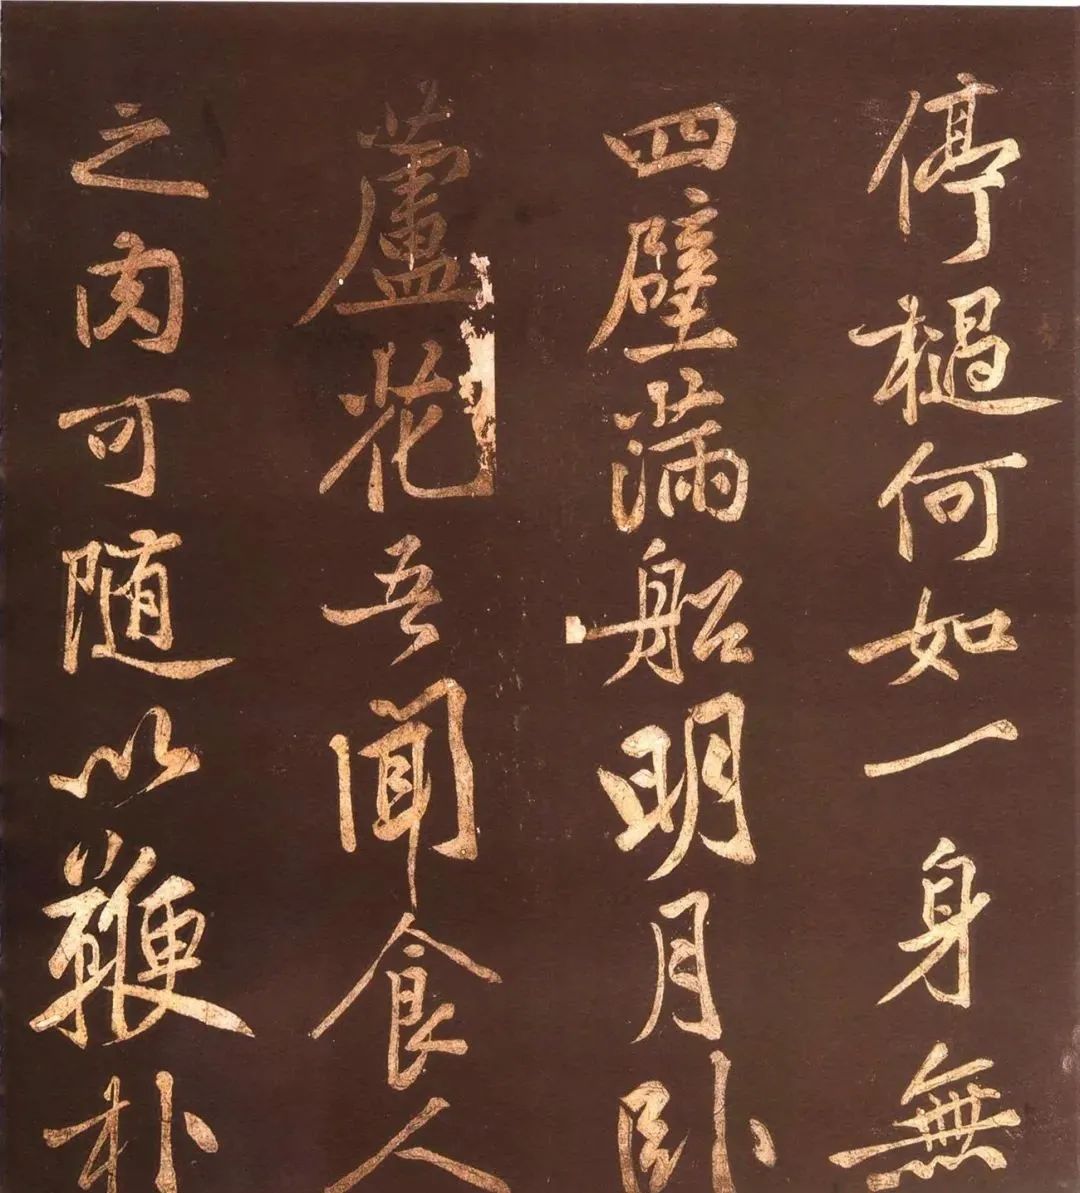 停檛何如一身無
四壁滿船明月卧
蘆花吾聞食人
之肉可随以鞭朴